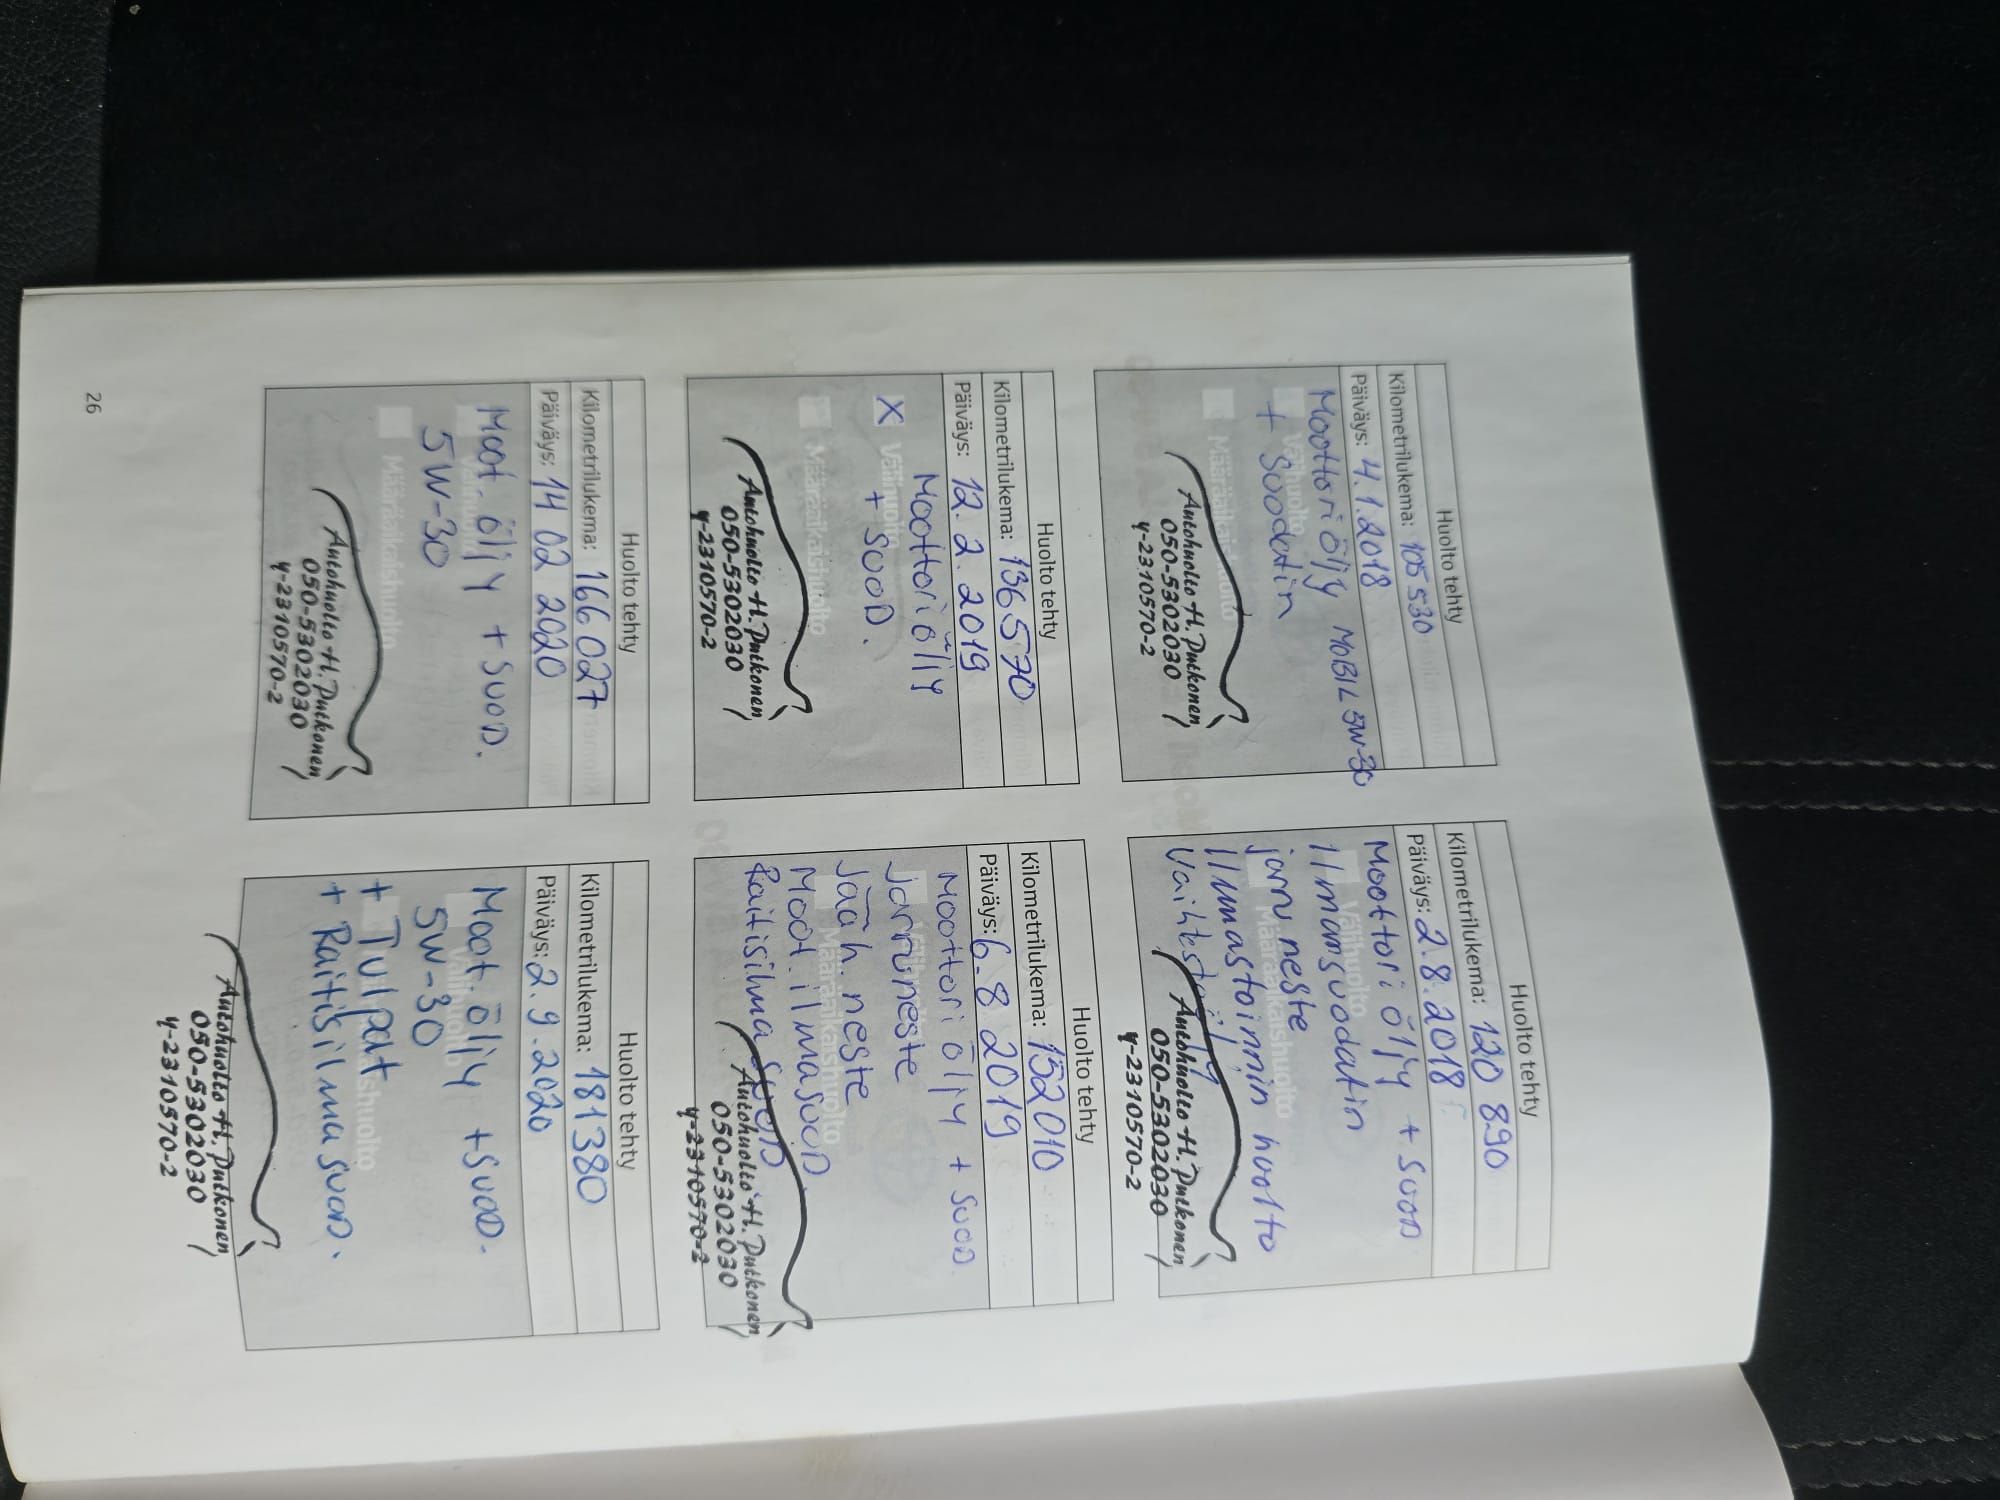 Huolto tehty
Kilometrilukema: 105 530
Päiväys: 4.1.2018
Moottoriöljy MOBIL 5W-30
+ Suodatin
Välihuolto
Määräaikaishuolto
Autohuolto H. Putkonen
050-5302030
Y-2310570-2
Huolto tehty
Kilometrilukema: 120 890
Päiväys: 2.8.2018
Moottoriöljy + SUOD
Ilmansuodatin
Välihuolto
jarruneste
Määräaikaishuolto
Ilmastoinnin huolto
Vaihteistoöljy
Autohuolto H. Putkonen
050-5302030
Y-2310570-2
Huolto tehty
Kilometrilukema: 136 570
Päiväys: 12.2.2019
Moottoriöljy
X Välihuolto
+ SUOD.
Määräaikaishuolto
Autohuolto H. Putkonen
050-5302030
Y-2310570-2
Huolto tehty
Kilometrilukema: 152010
Päiväys: 6.8 2019
Moottoriöljy + SUOD.
Jarruneste
Välihuolto
Jääh. neste
Määräaikaishuolto
Moot. ilmaSUOD.
Raitisilma SUOD
Autohuolto H. Putkonen
050-5302030
Y-2310570-2
Huolto tehty
Kilometrilukema: 166 027
Päiväys: 14 02 2020
Moot. öljy + SUOD.
5W-30
Määräaikaishuolto
Autohuolto H. Putkonen
050-5302030
Y-2310570-2
Huolto tehty
Kilometrilukema: 181380
Päiväys: 2.9.2020
Moot. öljy + SUOD.
Välihuolto
5W-30
+ Tulpat
+ Raitisilma SUOD.
Autohuolto H. Putkonen
050-5302030
Y-2310570-2
26